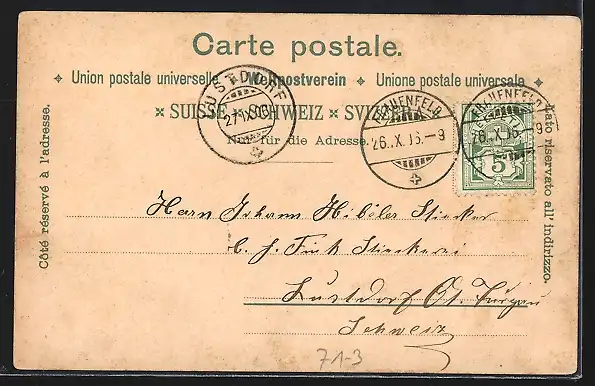 Carte postale.
Union postale universelle. Weltpostverein Unione postale universale
SUISSE. SCHWEIZ SVIZZERA
Nur für die Adresse.
Côté réservé à l'adresse.
Lato riservato all' indirizzo.
LUSTDORF
27.IX.06
FRAUENFELD
26.X.06.-9
FRAUENFELD
26.X.06.-9
5
Herrn Johann Sticker
b. J. Stickerei
Lustdorf Ct. Turgau
Schweiz
71-3